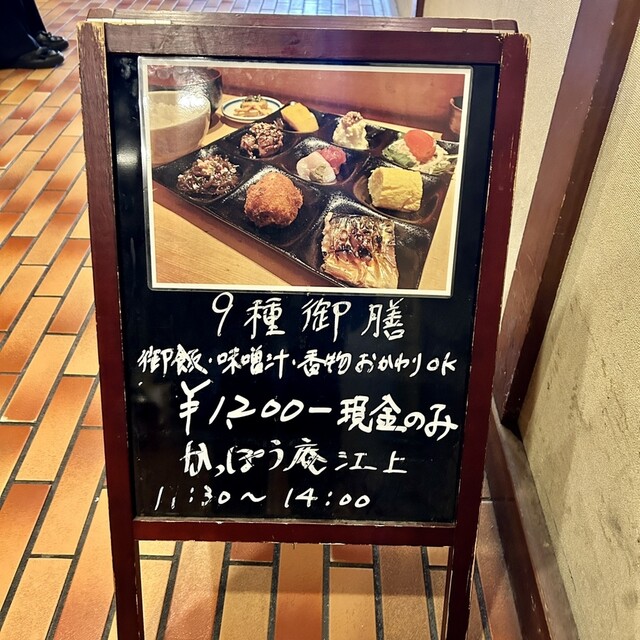 9種御膳
御飯・味噌汁・香物おかわりOK
¥1,200−現金のみ
かっぽう庵江上
11:30〜14:00